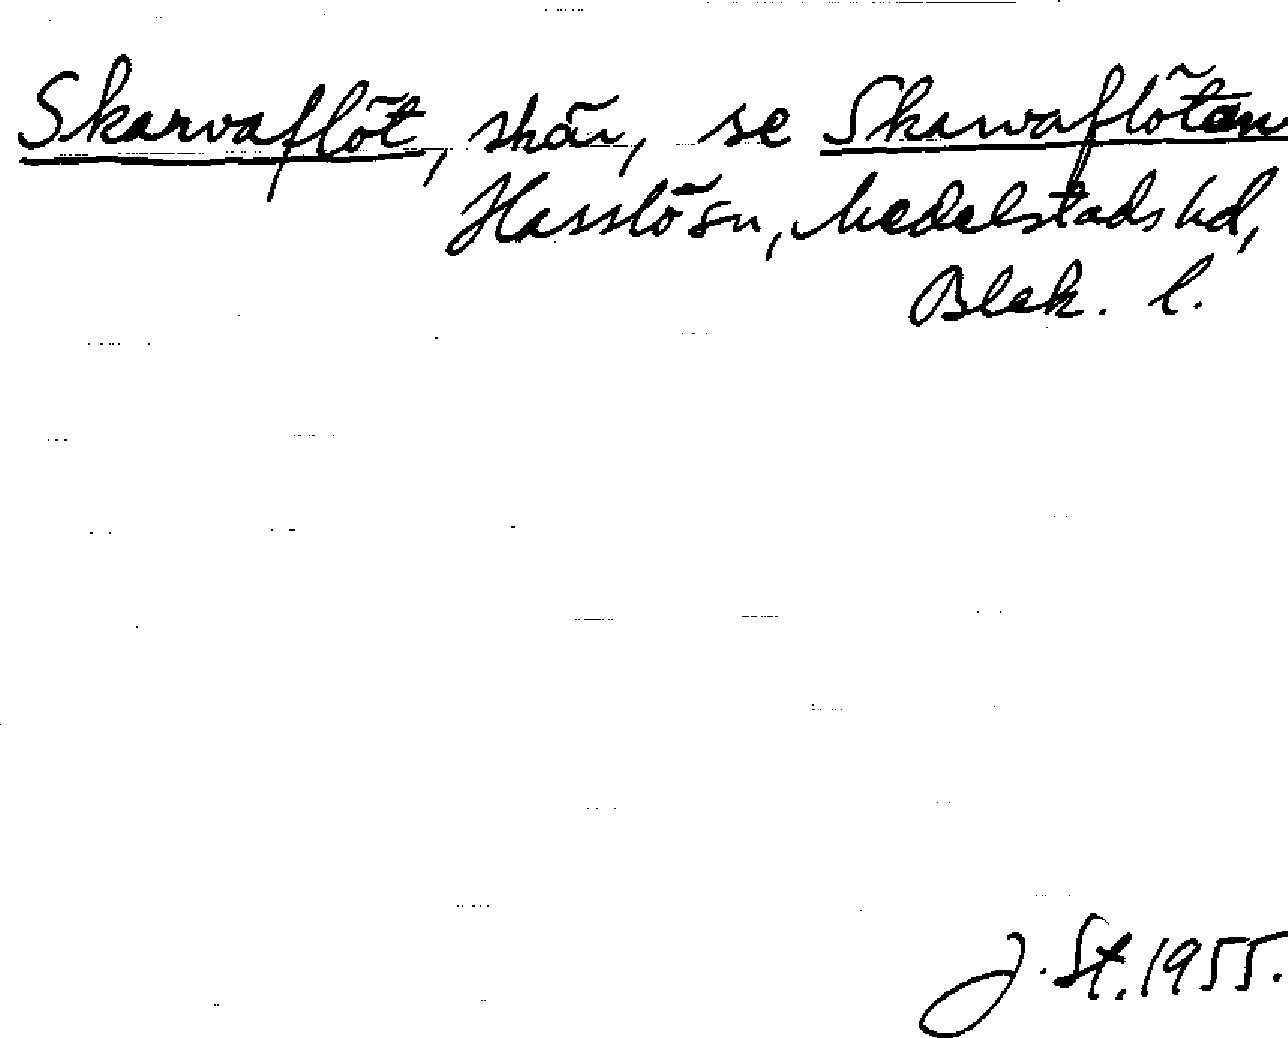 Skarvaflöt, skär, se Skarvaflötan
Hasslösn, Medelstads hd,
Blek. l.
J. St. 1955.